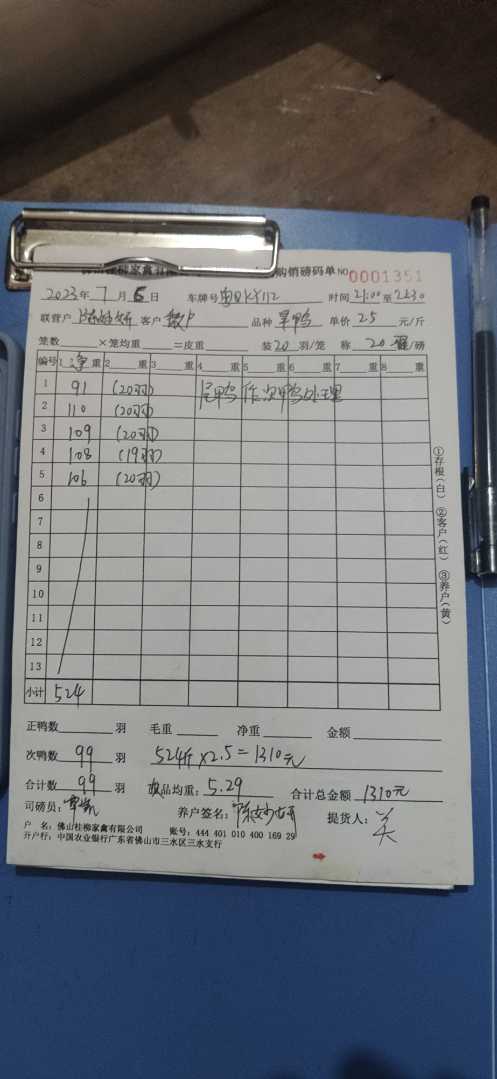 佛山桂柳家禽有限公 购销磅码单 NO 0001351
2023年 7 月 6 日 车牌号 时间 21:00 至 2230
联营户 客户 散户 品种 单价 2.5 元/斤
笼数 ×笼均重 =皮重 装 20 羽/笼 称 20 /磅
编号 1 净 重 2 重 3 重 4 重 5 重 6 重 7 重 8 重
1 91 (20羽) 尾鸭作次鸭处理
2 110 (20羽)
3 109 (20羽)
4 108 (19羽)
5 106 (20羽)
6
7
8
9
10
11
12
13
小计 524
正鸭数 羽 毛重 净重 金额
次鸭数 99 羽 524斤×2.5=1310元
合计数 99 羽 品均重: 5.29 合计总金额 1310元
司磅员: 养户签名: 提货人:
户 名: 佛山桂柳家禽有限公司 账号: 444 401 010 400 169 29
开户行: 中国农业银行广东省佛山市三水区三水支行
①存根(白) ②客户(红) ③养户(黄)